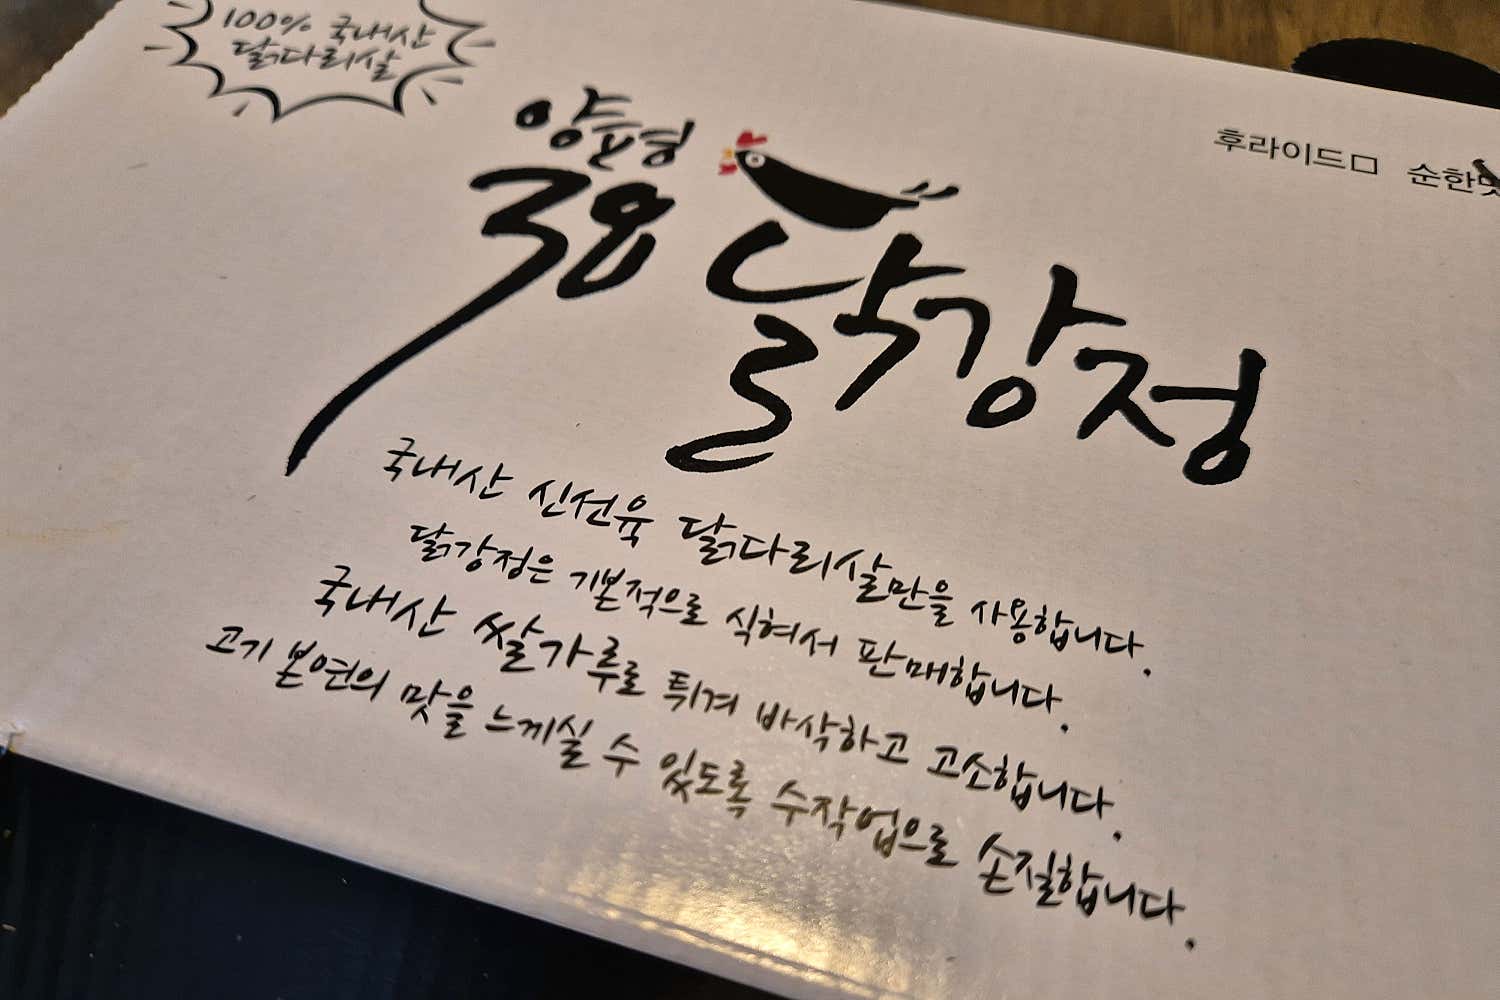 100% 국내산
닭다리살
후라이드□ 순한맛
양순형
38 닭강정
국내산 신선육 닭다리살만을 사용합니다.
닭강정은 기본적으로 식혀서 판매합니다.
국내산 쌀가루로 튀겨 바삭하고 고소합니다.
고기 본연의 맛을 느끼실 수 있도록 수작업으로 손질합니다.